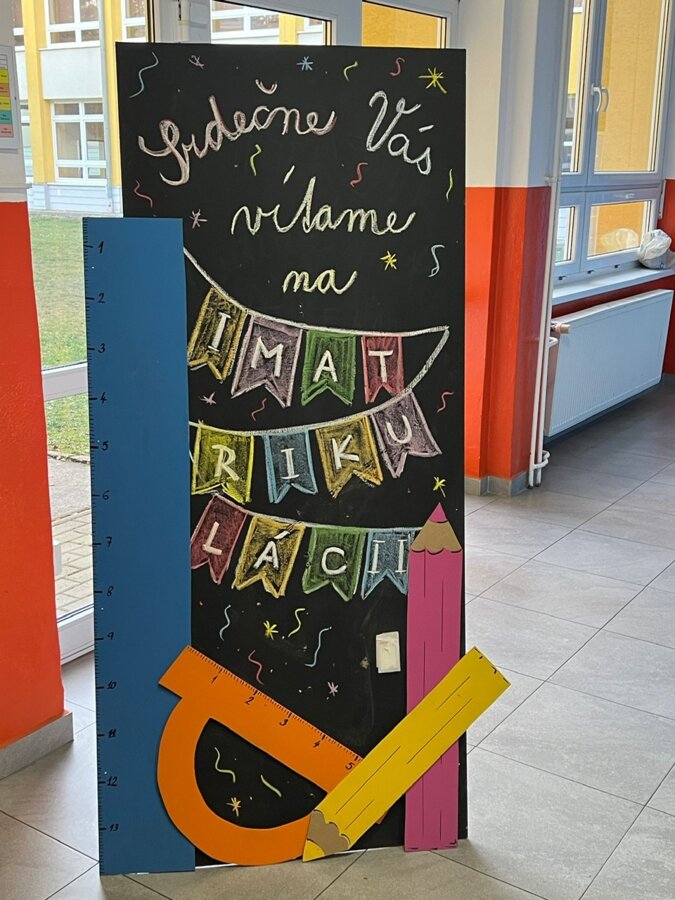 Srdečne Vás
vítame
na
IMAT
RIKU
LÁCII
1
2
3
4
5
6
7
8
9
10
11
12
13
1 2 3 4 5